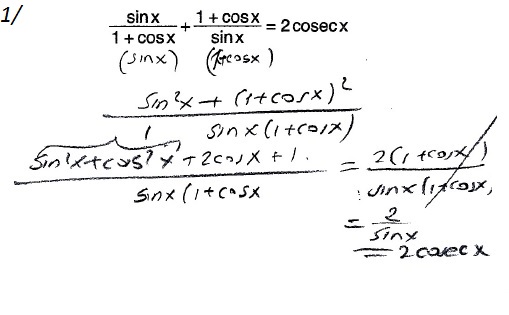 1/
sinx/(1+cosx) + (1+cosx)/sinx = 2cosecx
(sinx) (1+cosx)
(sin²x + (1+cosx)²)/(sinx(1+cosx))
1
(sin²x+cos²x+2cosx+1.)/(sinx(1+cosx) = 2(1+cosx)/(sinx(1+cosx)
= 2/sinx
= 2cosecx